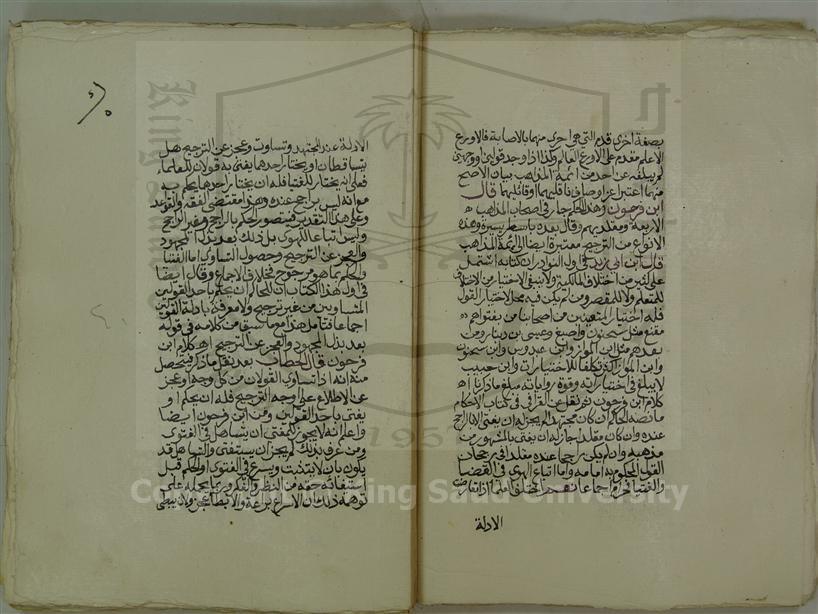 بصفة اخرى قدم التي هو احرى منهما بالاصابة فالاورع
الاعلم مقدم على الاورع العالم وكذا اذا وجد قولين او وجهين
لم يبلغه عن احد من ائمة المذاهب بيان الاصح
منهما اعتبر اوصاف ناقليهما وقائليهما قال
ابن فرحون وهذا الحكم جار في اصحاب المذاهب
الاربعة ومقلديهم وقال بعده باسطر يسيرة وهذه
الانواع من الترجيح معتبرة ايضا الى ائمة المذاهب
قال ابن ابي زيد في اول النوادر ان كتابه اشتمل
على كثير من اختلاف المالكية ولا ينبغي الاختيار من الاختلاف
للمتعلم ولا للمقصر ومن لم يكن فيه محل لاختيار القول
فله اختيار المتعقبين من اصحابنا من نقادهم
مقنع مثل سحنون واصبغ وعيسى بن دينار ومن
بعدهم مثل ابن المواز وابن عبدوس وابن سحنون
وابن المواز اكثر تكلفا للاختيارات وابن حبيب
لا يبلغ في اختياراته وقوة رواياته مبلغ ما ذكرنا اهـ
كلام ابن فرحون ثم نقل عن القرافي في كتاب الاحكام
ما نصه الحاكم ان كان مجتهدا لم يجز له ان يفتي الا بالراجح
عنده وان كان مقلدا جاز له ان يفتي بالمشهور من
مذهبه وان لم يكن راجحا عنده مقلدا في رجحان
القول المحكوم به امامه واما اتباع الهوى في القضا
والفتيا فحرام اجماعا نعم اختلف العلما اذا تعارضت
الادلة
الادلة عند المجتهد وتساوت وعجز عن الترجيح هل
يتساقطان او يختار احدهما يفتي به قولان للعلما
فعلى انه يختار للفتيا فله ان يختار احدهما يحكم به
مع انه ليس براجح عنده وهذا مقتضى الفقه والقواعد
وعلى هذا التقدير فيتصور الحكم بالراجح وغير الراجح
وليس اتباعا للهوى بل ذلك بعد بذل المجهود
والعجز عن الترجيح وحصول التساوي اما الفتيا
والحكم بما هو مرجوح فخلاف الاجماع وقال ايضا
في اول هذا الكتاب ان للحاكم ان يحكم باحد القولين
المتساويين من غير ترجيح ولا معرفة بادلة القولين
اجماعا فتامل هذا مع ما سبق من كلامه في قوله
بعد بذل المجهود والعجز عن الترجيح اهـ كلام ابن
فرحون قال الحطاب بعد نقل ما ذكر فيتحصل
منه انه اذا تساوى القولان من كل وجه وعجز
عن الاطلاع على اوجه الترجيح فله ان يحكم او
يفتي باحد القولين ومن ابن فرحون ايضا
واعلم انه لا يجوز للمفتي ان يتساهل في الفتوى
ومن عرف بذلك لم يجز ان يستفتى والتساهل قد
يكون بان لا يتثبت ويسرع في الفتوى او الحكم قبل
استيفائه حقه من النظر والفكر وربما يحمله على
توهمه ذلك ان الاسراع براعة والابطا عجز ولان يبطى